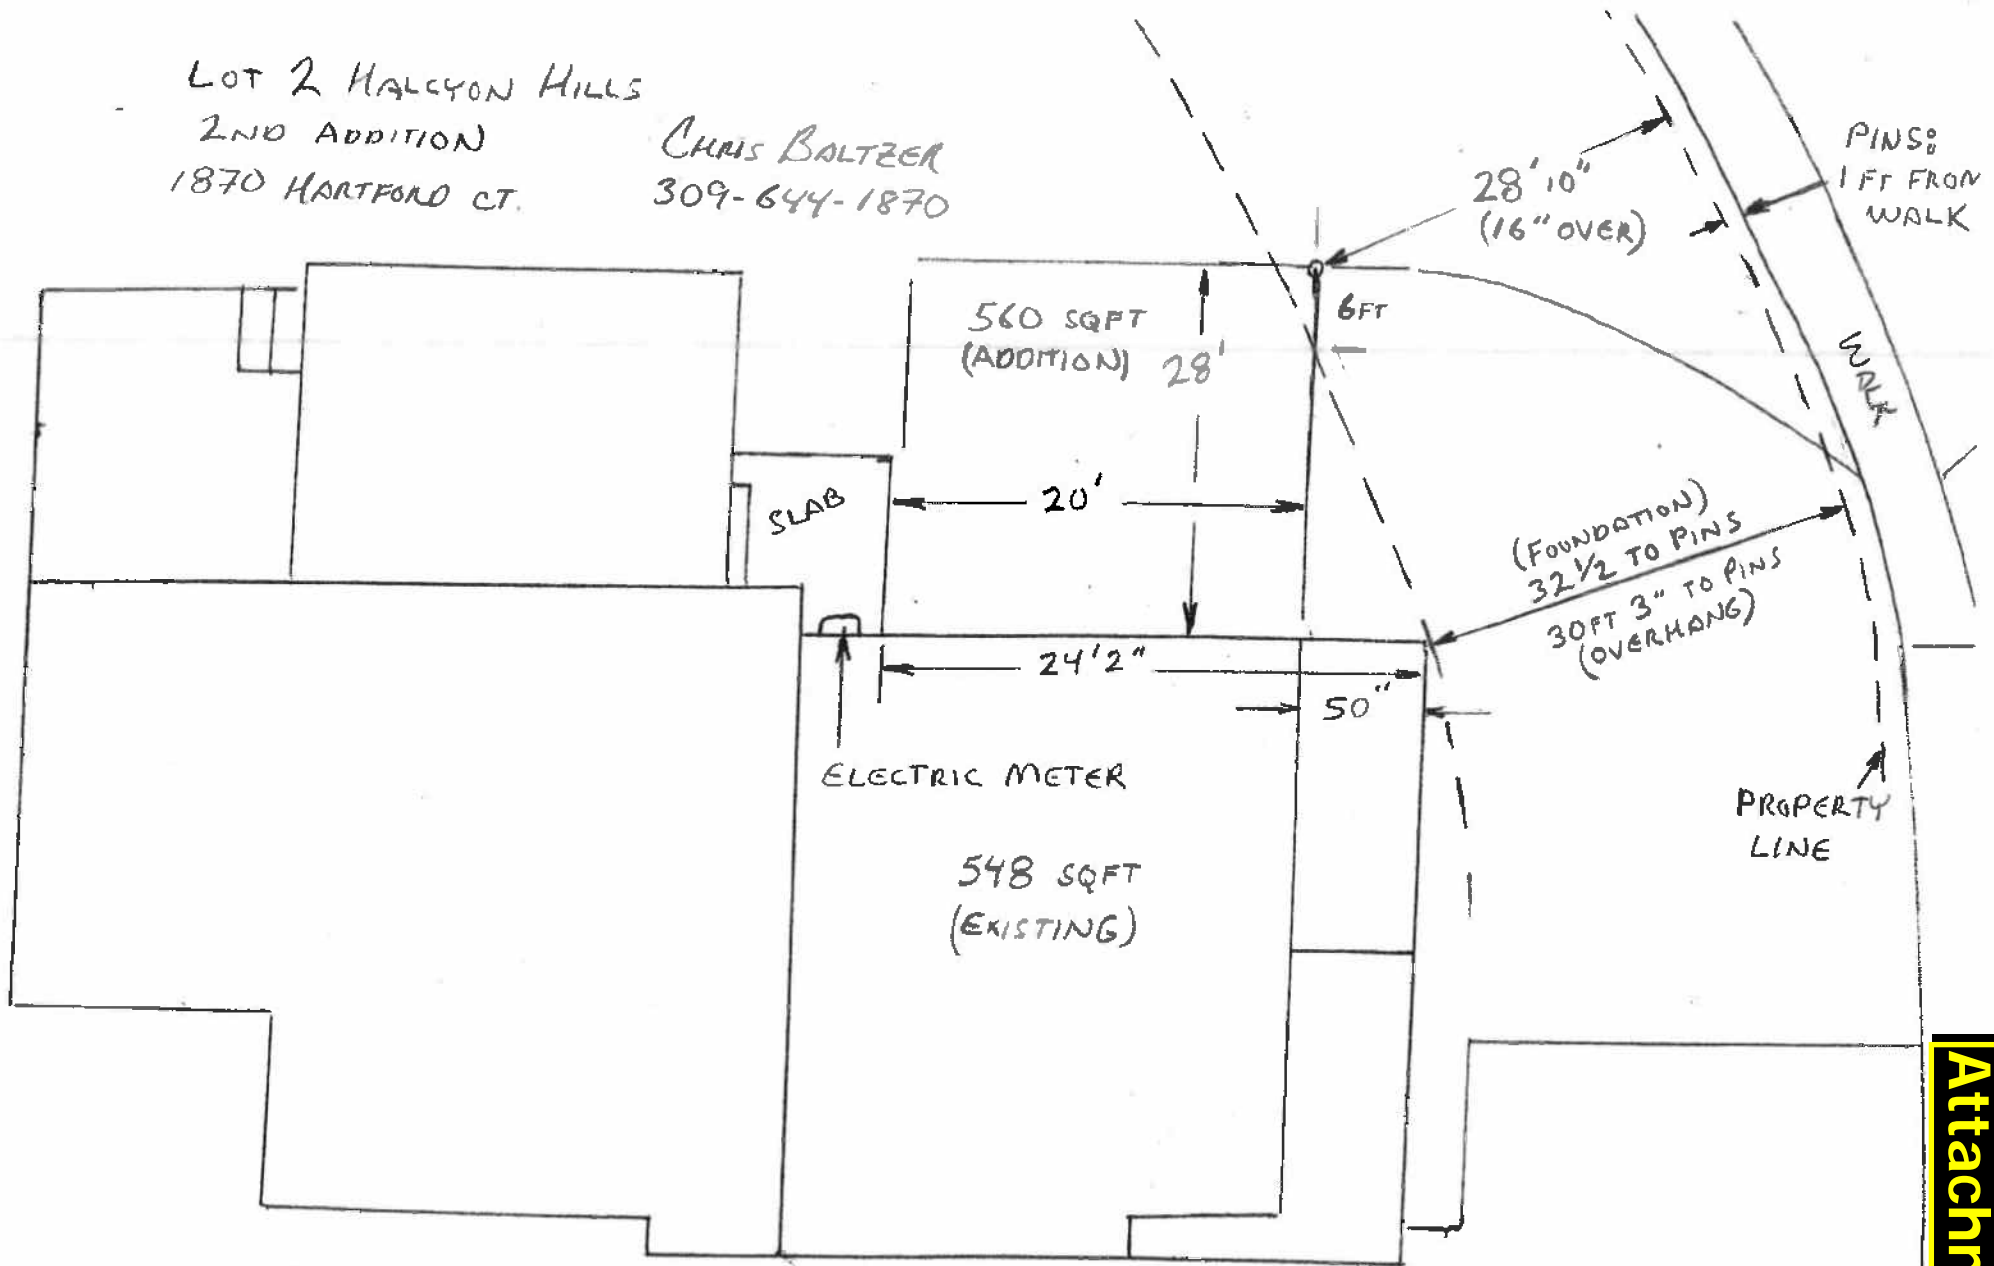 LOT 2 HALCYON HILLS
2ND ADDITION
1870 HARTFORD CT.
CHRIS BALTZER
309-644-1870
28'10"
(16" OVER)
PINS:
1 FT FROM
WALK
560 SQFT
(ADDITION)
28'
6FT
WALK
SLAB
20'
(FOUNDATION)
32 1/2 TO PINS
30FT 3" TO PINS
(OVERHANG)
24'2"
50"
ELECTRIC METER
PROPERTY
LINE
548 SQFT
(EXISTING)